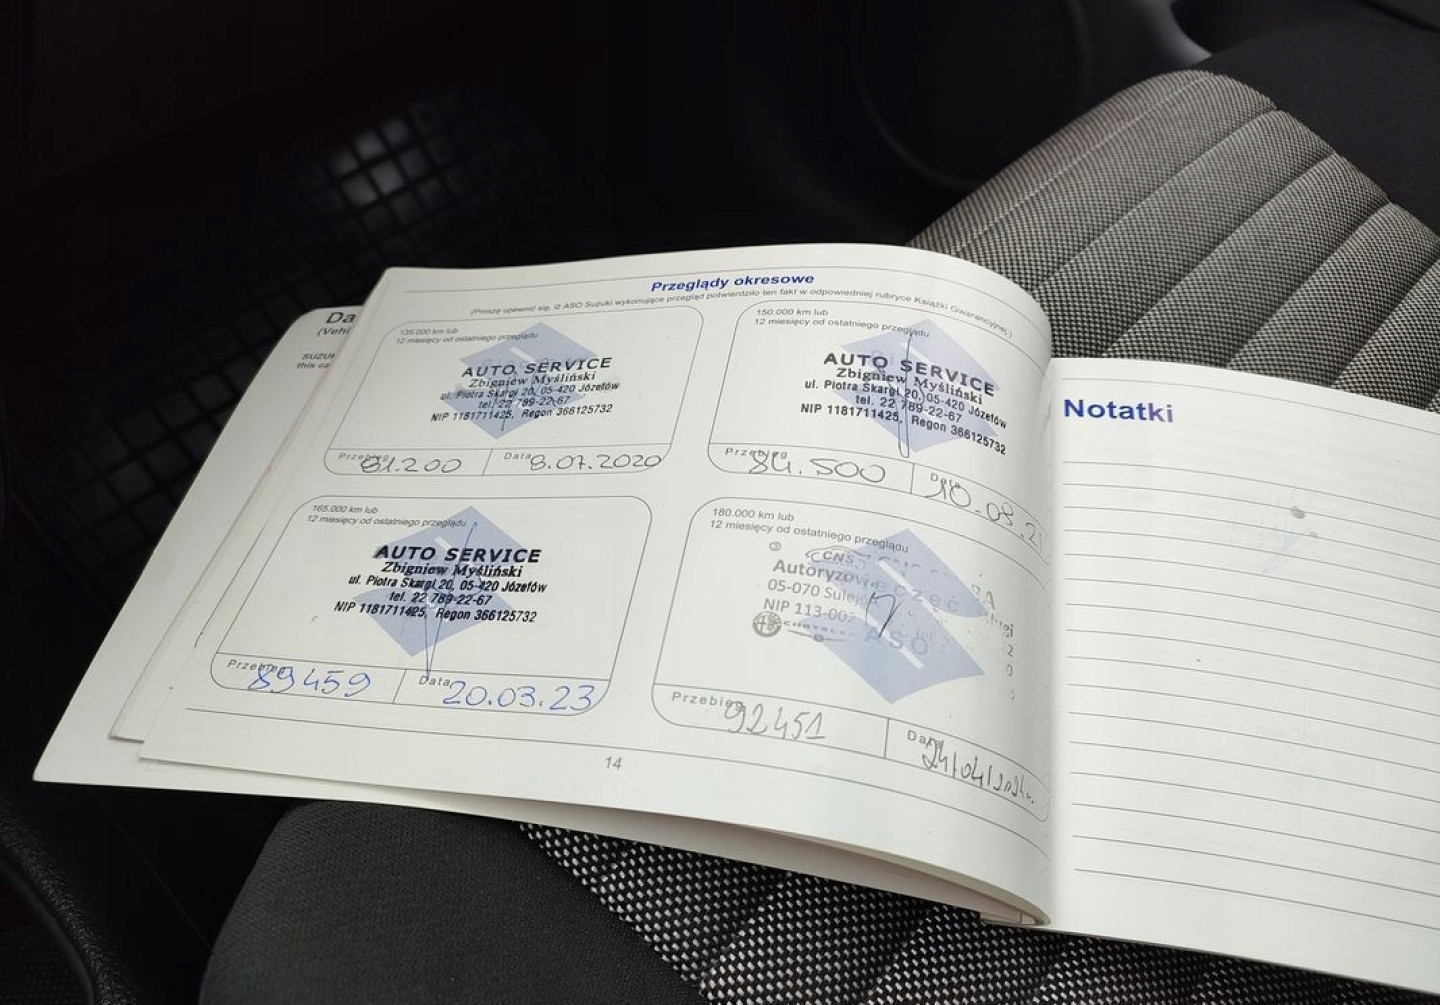 Da
(Vehi
SUZU
this ca
Przeglądy okresowe
(Proszę upewnić się, iż ASO Suzuki wykonujące przegląd potwierdziło ten fakt w odpowiedniej rubryce Książki Gwarancyjnej.)
135.000 km lub
12 miesięcy od ostatniego przeglądu
AUTO SERVICE
Zbigniew Myśliński
ul. Piotra Skargi 20, 05-420 Józefów
tel. 22 789-22-67
NIP 1181711425, Regon 366125732
Przebieg 81.200 Data 8.07.2020
150.000 km lub
12 miesięcy od ostatniego przeglądu
AUTO SERVICE
Zbigniew Myśliński
ul. Piotra Skargi 20, 05-420 Józefów
tel. 22 789-22-67
NIP 1181711425, Regon 366125732
Przebieg 84.500 Data 10.08.21
165.000 km lub
12 miesięcy od ostatniego przeglądu
AUTO SERVICE
Zbigniew Myśliński
ul. Piotra Skargi 20, 05-420 Józefów
tel. 22 789-22-67
NIP 1181711425, Regon 366125732
Przebieg 89459 Data 20.03.23
180.000 km lub
12 miesięcy od ostatniego przeglądu
CNS
05-070
NIP 113-002
CHRYSLER
ASO
Przebieg 92451 Data 24/04/2024r.
14
Notatki